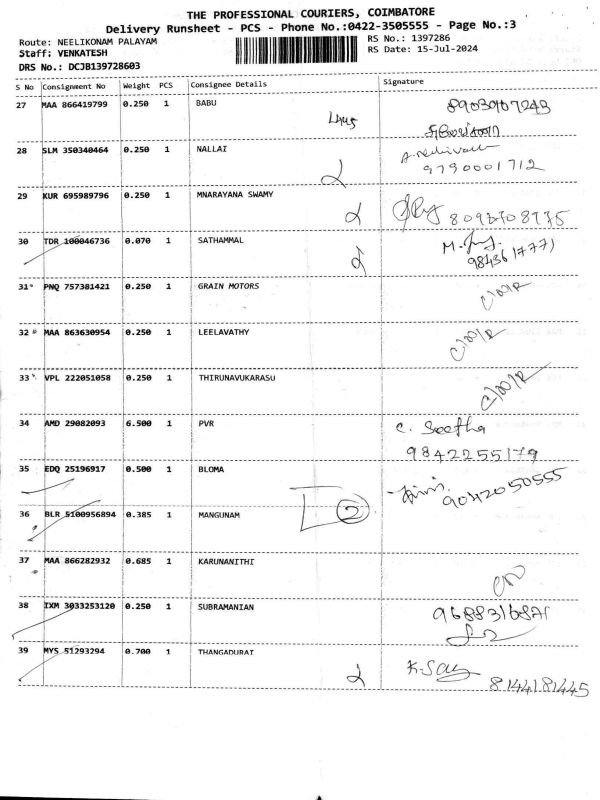 THE PROFESSIONAL COURIERS, COIMBATORE
Delivery Runsheet - PCS - Phone No.:0422-3505555 - Page No.:3
Route: NEELIKONAM PALAYAM
RS No.: 1397286
Staff: VENKATESH
RS Date: 15-Jul-2024
DRS No.: DCJB139728603
S No Consignment No Weight PCS Consignee Details Signature
27 MAA 866419799 0.250 1 BABU
28 SLM 350340464 0.250 1 NALLAI
9790001712
29 KUR 695989796 0.250 1 MNARAYANA SWAMY
30 TDR 100046736 0.070 1 SATHAMMAL
31 PNQ 757381421 0.250 1 GRAIN MOTORS
32 MAA 863630954 0.250 1 LEELAVATHY
33 VPL 222051058 0.250 1 THIRUNAVUKARASU
34 AMD 29082093 6.500 1 PVR C. Seetha
9842255179
35 EDQ 25196917 0.500 1 BLOMA
9042050555
36 BLR 5100956894 0.385 1 MANGUNAM 2
37 MAA 866282932 0.685 1 KARUNANITHI
38 IXM 3033253120 0.250 1 SUBRAMANIAN
39 MYS 51293294 0.700 1 THANGADURAI
8144181445